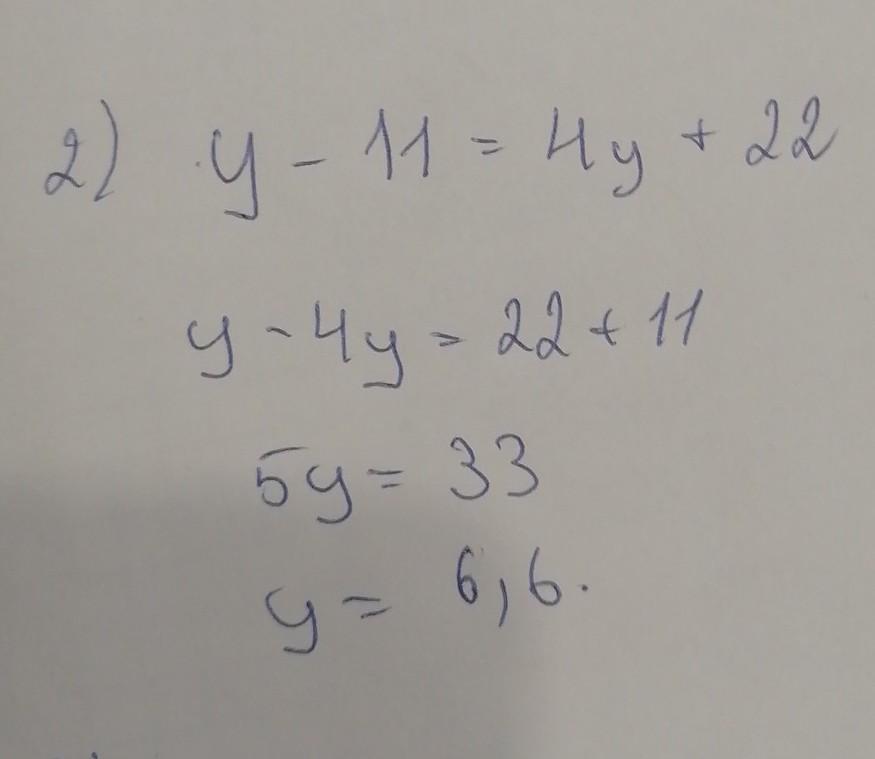 2) y - 11 = 4y + 22
y - 4y = 22 + 11
5y = 33
y = 6,6.